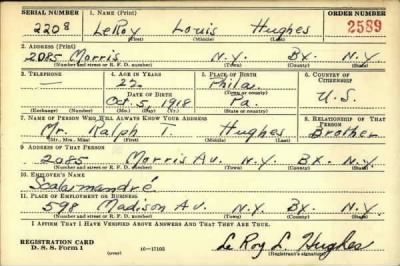 SERIAL NUMBER 1. NAME (Print) ORDER NUMBER
2208 LeRoy Louis Hughes 2589
(First) (Middle) (Last)
2. ADDRESS (Print)
2085 Morris N.Y. Bx. N.Y.
(Number and street or R. F. D. number) (Town) (County) (State)
3. TELEPHONE 4. AGE IN YEARS 5. PLACE OF BIRTH 6. COUNTRY OF CITIZENSHIP
— 22 Phila.
DATE OF BIRTH (Town or county)
Oct. 5, 1918 Pa. U.S.
(Exchange) (Number) (Mo.) (Day) (Yr.) (State or country)
7. NAME OF PERSON WHO WILL ALWAYS KNOW YOUR ADDRESS 8. RELATIONSHIP OF THAT PERSON
Mr. Ralph T. Hughes Brother
(Mr., Mrs., Miss) (First) (Middle) (Last)
9. ADDRESS OF THAT PERSON
2085 Morris Av. N.Y. Bx. N.Y.
(Number and street or R. F. D. number) (Town) (County) (State)
10. EMPLOYER'S NAME
Scalamandré
11. PLACE OF EMPLOYMENT OR BUSINESS
598 Madison Av. N.Y. N.Y.
(Number and street or R. F. D. number) (Town) (County) (State)
I AFFIRM THAT I HAVE VERIFIED ABOVE ANSWERS AND THAT THEY ARE TRUE.
REGISTRATION CARD
D. S. S. Form 1 (over) 16—17105 Le Roy L. Hughes
(Registrant's signature)